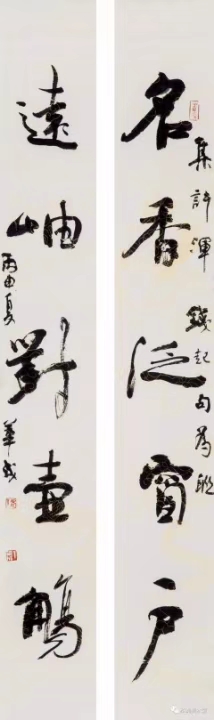 名香泛窗户
集許渾錢起句為聯
遠岫對壺觴
丙申夏
華